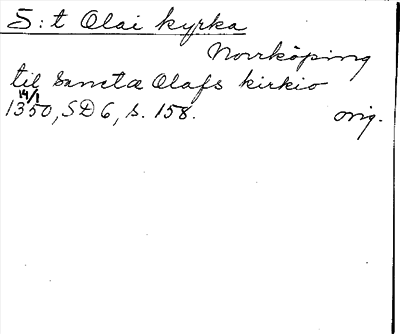 S:t Olai kyrka
Norrköping
til Sanctæ Olafs kirkio
14/1
1350, SD 6, s. 158. orig.